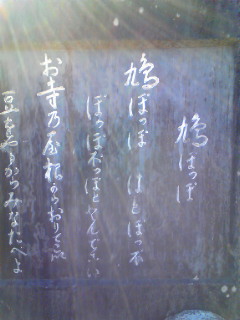 鳩ぽっぽ
鳩ぽっぽ はとぽっぽ
ぽっぽぽっぽととんでこい
お寺乃屋根からおりて来い
豆をやるからみなたべよ